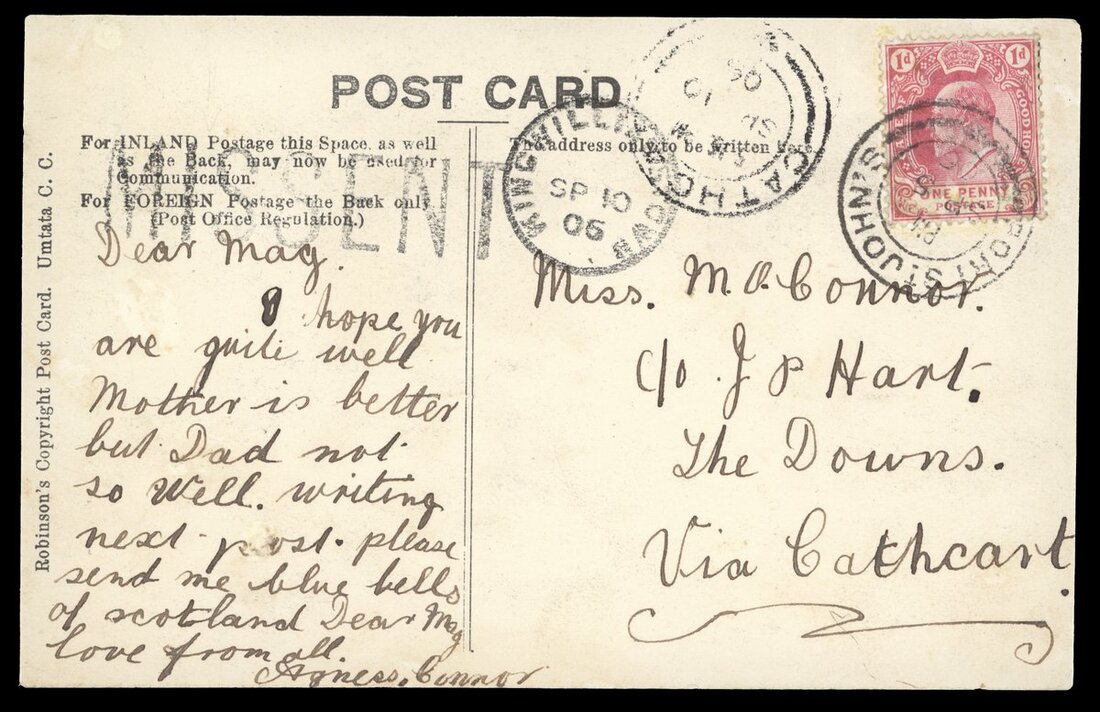 POST CARD
For INLAND Postage this Space, as well
as the Back, may now be used for
Communication.
For FOREIGN Postage the Back only
(Post Office Regulation.)
The address only to be written here.
MISSENT
KING WILLIAMS TOWN
SP 10
06
CATHCART
PORT ST JOHN'S
1d 1d
CAPE OF GOOD HOPE
ONE PENNY
POSTAGE
Robinson's Copyright Post Card. Umtata C. C.
Dear Mag.
I hope you
are quite well
Mother is better
but Dad not
so Well. writing
next post. please
send me blue bells
of scotland Dear Mag
love from all.
Agness. Connor
Miss. M. O. Connor.
c/o J P Hart.
The Downs.
Via Cathcart.